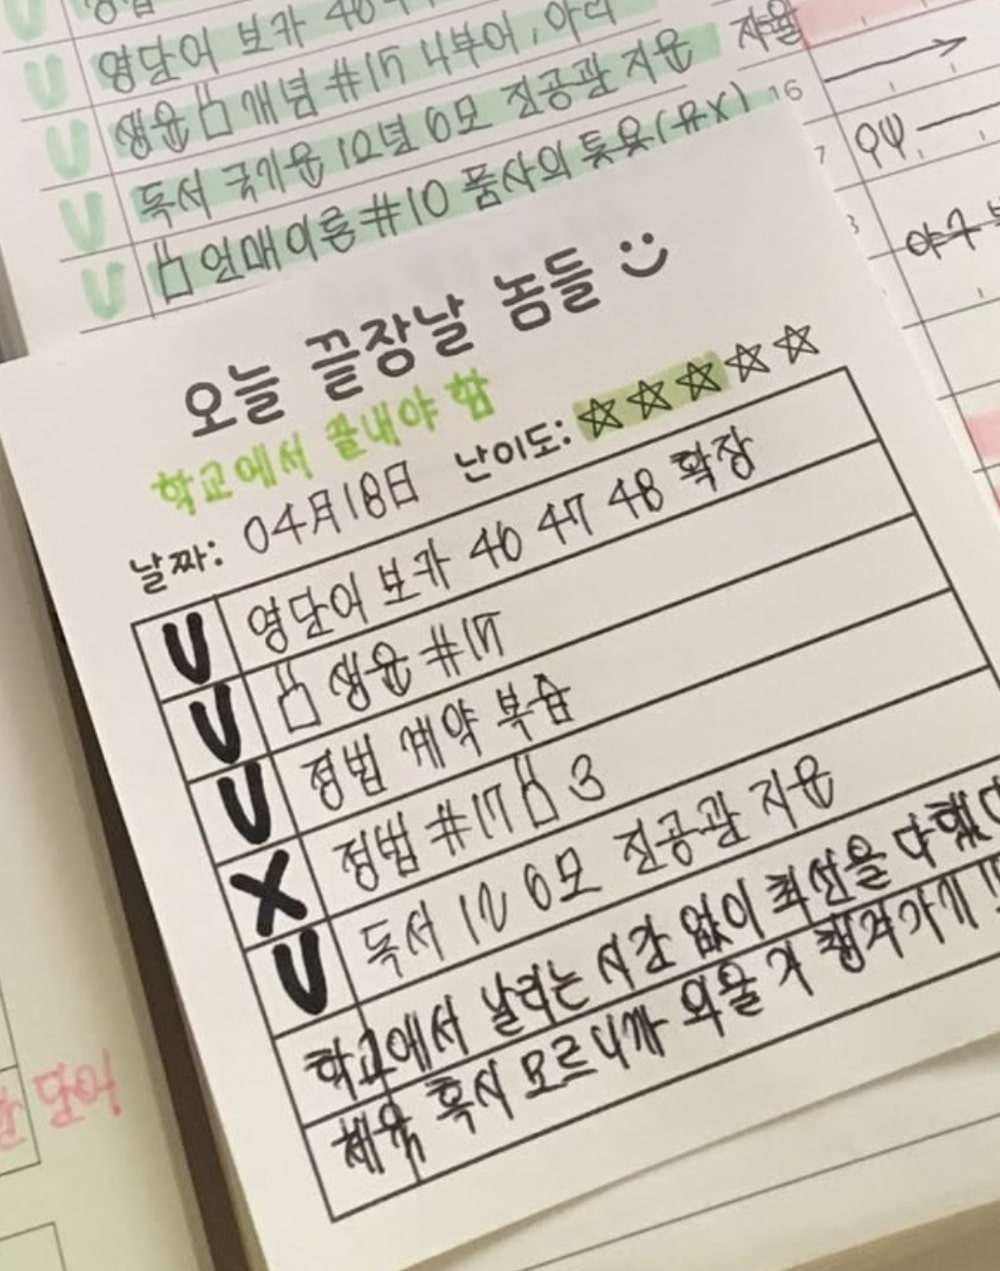 영단어 보카 46
생윤 개념 #17 나부어, 아리
독서 국기윤 12년 6모 진공관 지윤
언매이룽 #10 품사의 통용(유X)
16
자율
7
야구
오늘 끝장날 놈들
학교에서 끝내야 함
난이도: ☆☆☆☆☆
날짜: 04月18日
U 영단어 보카 46 47 48 확장
U 생윤 #17
U 정법 계약 복습
X 정법 #17 3
U 독서 12 6모 진공관 지윤
학교에서 날리는 시간 없이 최선을 다했다
체육 혹시 모르니까 외울 거 챙겨가기 !!
단어